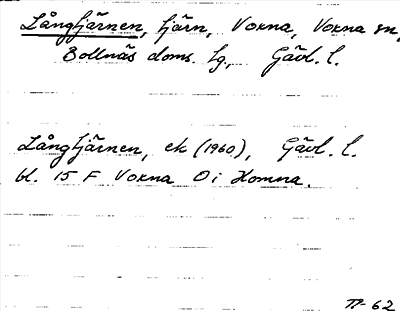 Långtjärnen, tjärn, Voxna, Voxna sn,
Bollnäs doms. lg., Gävl. l.
Långtjärnen, ek (1960), Gävl. l.
bl. 15 F Voxna Ö i Homna.
TP-62